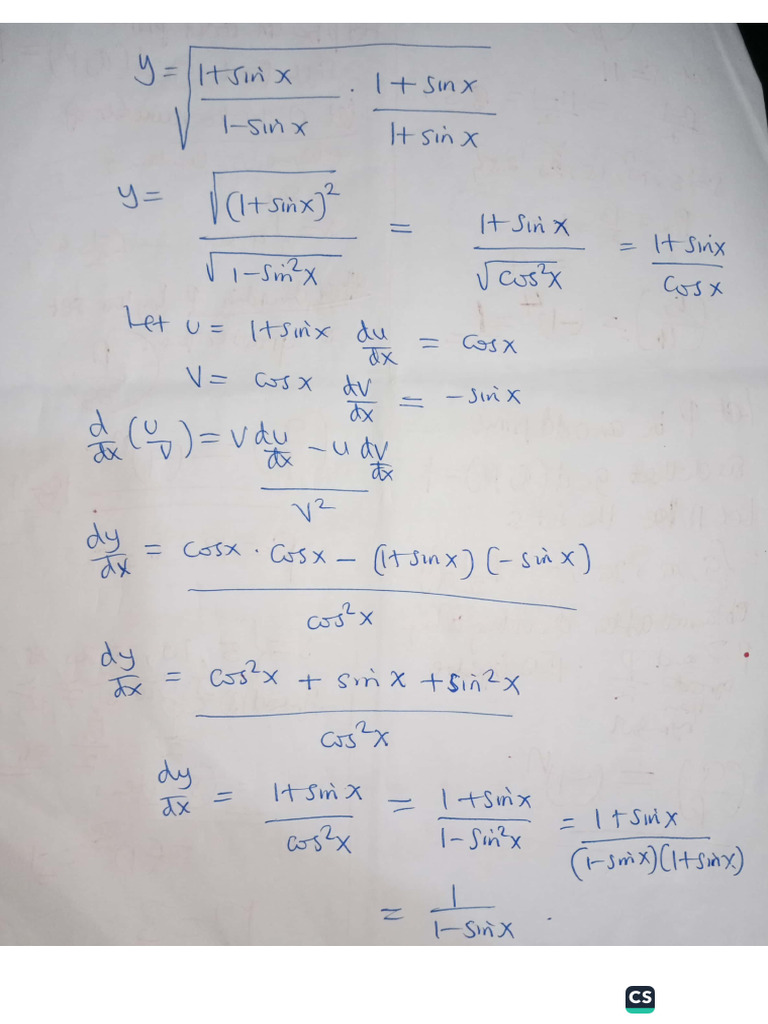 y = √((1+sin x)/(1-sin x) · (1+sin x)/(1+sin x))
y = √((1+sin x)²)/√(1-sin²x) = (1+sin x)/√(cos²x) = (1+sin x)/(cos x)
Let u = 1+sin x du/dx = cos x
V = cos x dv/dx = -sin x
d/dx (u/v) = (V du/dx - u dv/dx)/V²
dy/dx = (cos x · cos x - (1+sin x)(-sin x))/(cos²x)
dy/dx = (cos²x + sin x + sin²x)/(cos²x)
dy/dx = (1+sin x)/(cos²x) = (1+sin x)/(1-sin²x) = (1+sin x)/((1-sin x)(1+sin x))
= 1/(1-sin x) .
CS